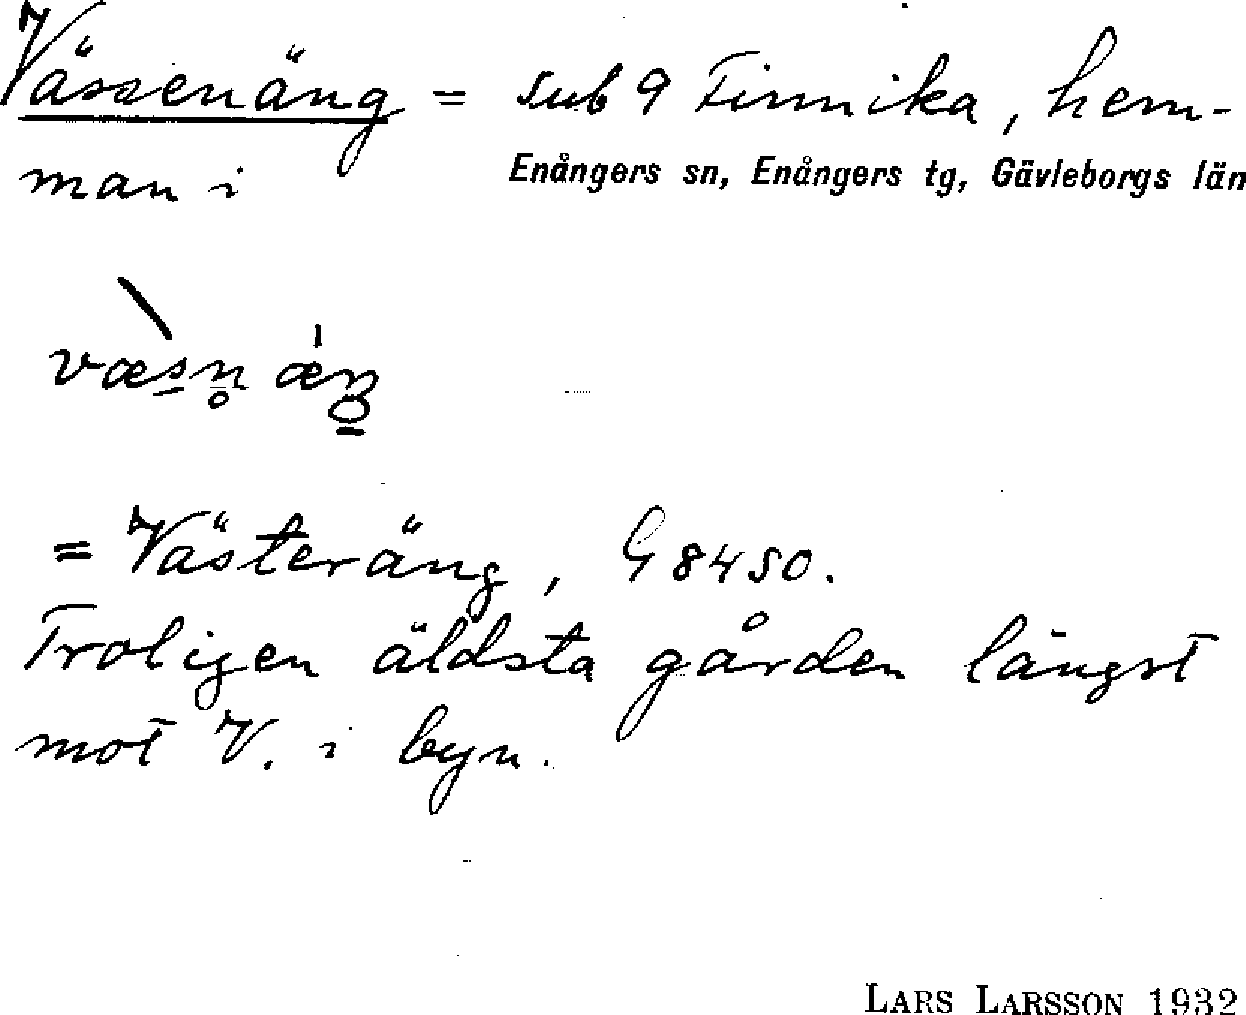 Vässenäng = sub 9 Finnika, hem-
man i
Enångers sn, Enångers tg, Gävleborgs län
= Västeräng, G 8450.
Troligen äldsta gården längst
mot V. i byn.
LARS LARSSON 1932